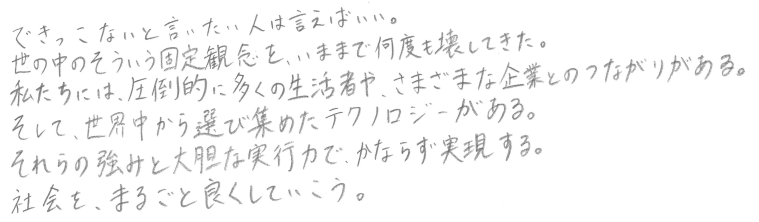 できっこないと言いたい人は言えばいい。
世の中のそういう固定観念を、いままで何度も壊してきた。
私たちには、圧倒的に多くの生活者や、さまざまな企業とのつながりがある。
そして、世界中から選び集めたテクノロジーがある。
それらの強みと大胆な実行力で、かならず実現する。
社会を、まるごと良くしていこう。